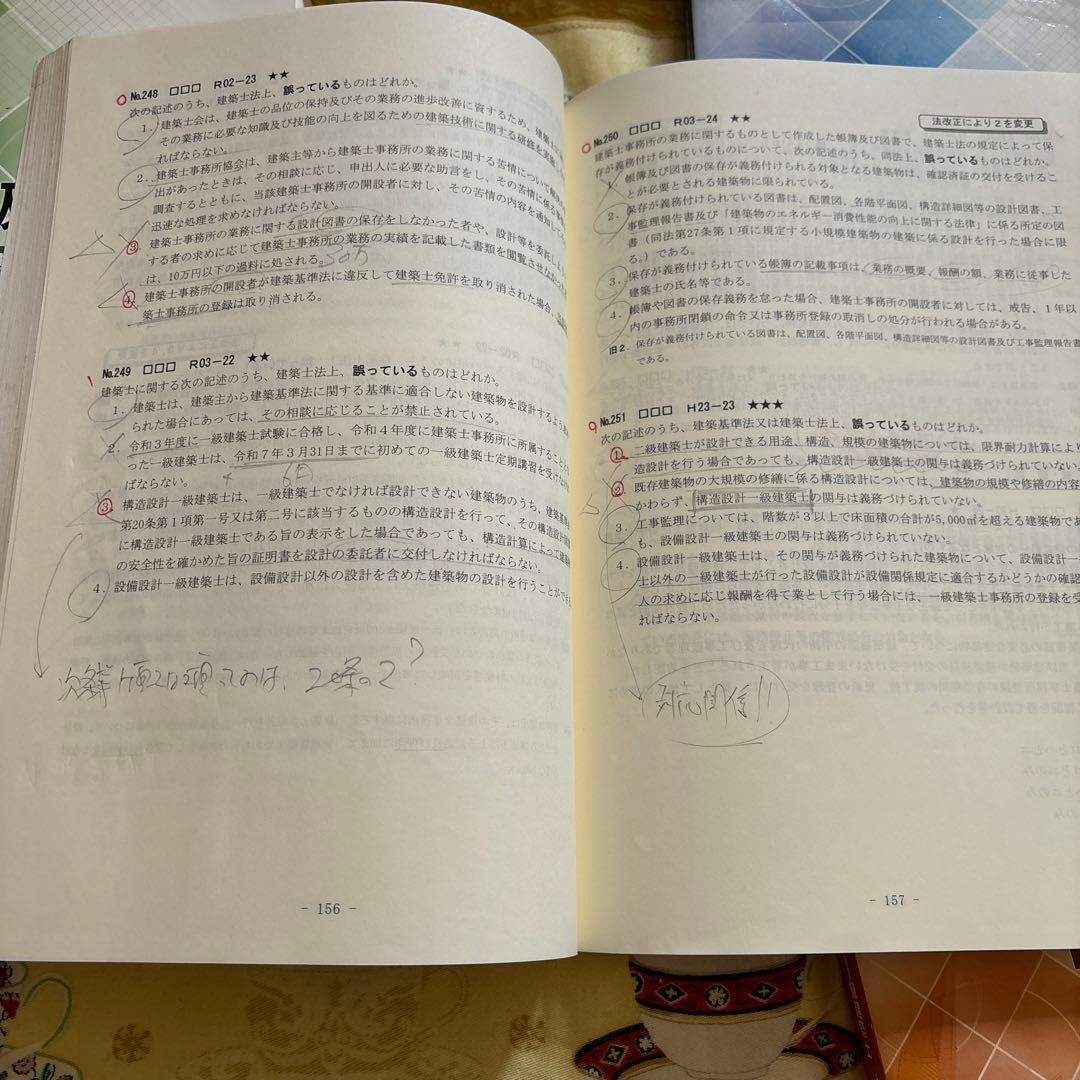 No.248 □□□ R02−23 ★★
次の記述のうち、建築士法上、誤っているものはどれか。
1. 建築士会は、建築士の品位の保持及びその業務の進歩改善に資するため、建築
その業務に必要な知識及び技能の向上を図るための建築技術に関する研修を実施し
ればならない。
2. 建築士事務所協会は、建築主等から建築士事務所の業務に関する苦情について解決の
出があったときは、その相談に応じ、申出人に必要な助言をし、その苦情に係る事情
調査するとともに、当該建築士事務所の開設者に対し、その苦情の内容を通知して
迅速な処理を求めなければならない。
3 建築士事務所の業務に関する設計図書の保存をしなかった者や、設計等を委託しよ
する者の求めに応じて建築士事務所の業務の実績を記載した書類を閲覧させなかった
は、10万円以下の過料に処される。30万
4 建築士事務所の開設者が建築基準法に違反して建築士免許を取り消された場合、
築士事務所の登録は取り消される。
No.249 □□□ R03−22 ★★
建築士に関する次の記述のうち、建築士法上、誤っているものはどれか。
1. 建築士は、建築主から建築基準法に関する基準に適合しない建築物を設計するよう
られた場合にあっては、その相談に応じることが禁止されている。
2. 令和3年度に一級建築士試験に合格し、令和4年度に建築士事務所に所属すること
った一級建築士は、令和7年3月31日までに初めての一級建築士定期講習を受けな
ばならない。
3 構造設計一級建築士は、一級建築士でなければ設計できない建築物のうち、建築基準
第20条第1項第一号又は第二号に該当するものの構造設計を行って、その構造設計
に構造設計一級建築士である旨の表示をした場合であっても、構造計算によって建築
の安全性を確かめた旨の証明書を設計の委託者に交付しなければならない。
4. 設備設計一級建築士は、設備設計以外の設計を含めた建築物の設計を行うことができ
2条の2
- 156 -
No.250 □□□ R03−24 ★★
法改正により2を変更
建築士事務所の業務に関するものとして作成した帳簿及び図書で、建築士法の規定によって保
存が義務付けられているものについて、次の記述のうち、同法上、誤っているものはどれか。
帳簿及び図書の保存が義務付けられる対象となる建築物は、確認済証の交付を受けるこ
とが必要とされる建築物に限られている。
2. 保存が義務付けられている図書は、配置図、各階平面図、構造詳細図等の設計図書、工
事監理報告書及び「建築物のエネルギー消費性能の向上に関する法律」に係る所定の図
書(同法第27条第1項に規定する小規模建築物の建築に係る設計を行った場合に限
る。)である。
3. 保存が義務付けられている帳簿の記載事項は、業務の概要、報酬の額、業務に従事した
建築士の氏名等である。
4. 帳簿や図書の保存義務を怠った場合、建築士事務所の開設者に対しては、戒告、1年以
内の事務所閉鎖の命令又は事務所登録の取消しの処分が行われる場合がある。
旧2. 保存が義務付けられている図書は、配置図、各階平面図、構造詳細図等の設計図書及び工事監理報告書
である。
No.251 □□□ H23−23 ★★★
次の記述のうち、建築基準法又は建築士法上、誤っているものはどれか。
1 二級建築士が設計できる用途、構造、規模の建築物については、限界耐力計算により
造設計を行う場合であっても、構造設計一級建築士の関与は義務づけられていない。
2 既存建築物の大規模の修繕に係る構造設計については、建築物の規模や修繕の内容
かわらず、構造設計一級建築士の関与は義務づけられていない。
3. 工事監理については、階数が3以上で床面積の合計が5,000㎡を超える建築物であ
も、設備設計一級建築士の関与は義務づけられていない。
4. 設備設計一級建築士は、その関与が義務づけられた建築物について、設備設計一
士以外の一級建築士が行った設備設計が設備関係規定に適合するかどうかの確認
人の求めに応じ報酬を得て業として行う場合には、一級建築士事務所の登録を受
ればならない。
対応関係!!
- 157 -